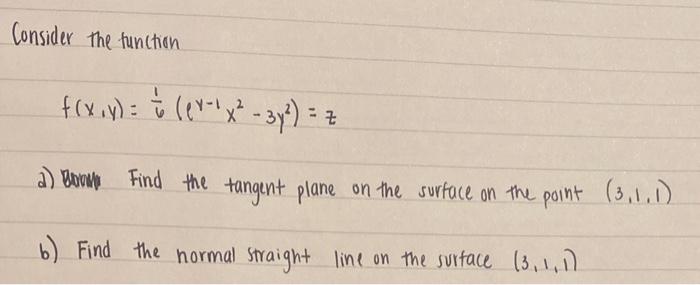 Consider the function
f(x,y) = 1/6 (e^{y-1} x² - 3y²) = z
a) Find the tangent plane on the surface on the point (3,1,1)
b) Find the normal straight line on the surface (3,1,1)